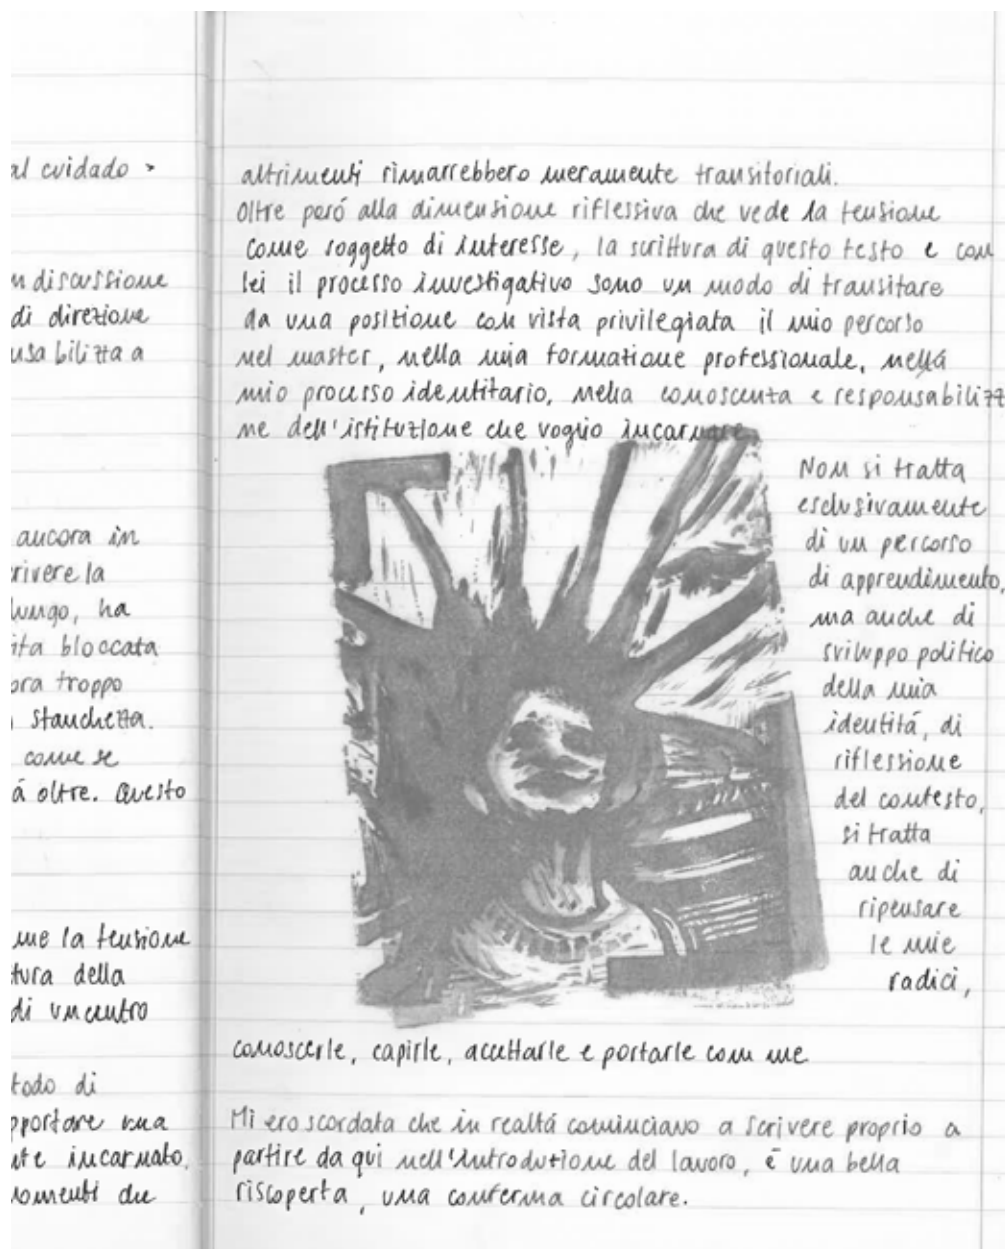 al cuidado
n discussione
di direzione
usabilizza a
ancora in
rivere la
lungo, ha
ita bloccata
ora troppo
stanchezza.
come se
á oltre. Questo
me la tensione
tura della
di un centro
todo di
pportare una
nte incarnato,
omenti du
altrimenti rimarrebbero meramente transitoriali.
Oltre peró alla dimensione riflessiva che vede la tensione
come soggetto di interesse, la scrittura di questo testo e con
lei il processo investigativo sono un modo di transitare
da una posizione con vista privilegiata il mio percorso
nel master, nella mia formazione professionale, nella
mio processo identitario, nella conoscenza e responsabilizz
ne dell'istituzione che voglio incarnare.
Non si tratta
esclusivamente
di un percorso
di apprendimento,
ma anche di
sviluppo politico
della mia
identitá, di
riflessione
del contesto,
si tratta
anche di
ripensare
le mie
radici,
conoscerle, capirle, accettarle e portarle con me
Mi ero scordata che in realtá cominciavo a scrivere proprio a
partire da qui nell'introduzione del lavoro, é una bella
riscoperta, una conferma circolare.